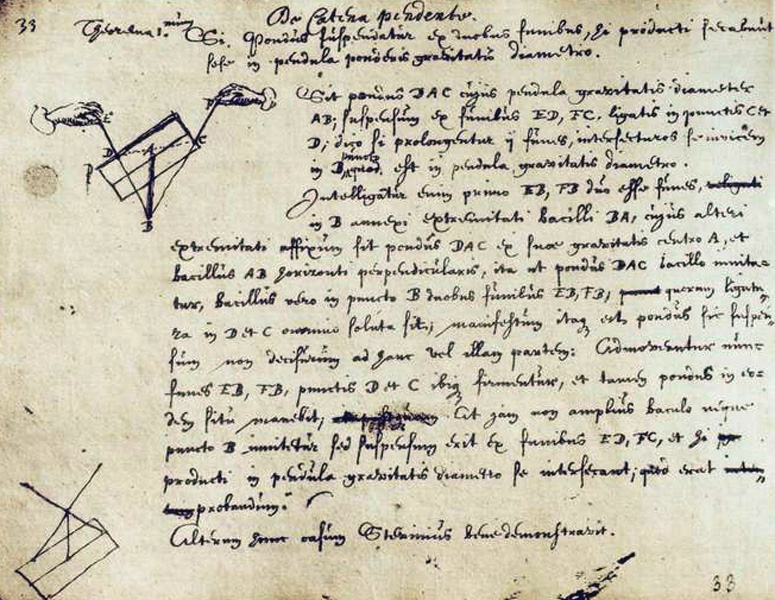 33
De Catena pendente.
Theorema 1.mum Si Pondus suspendatur ex duobus funibus, hi producti secabunt
sese in pendula ponderis gravitatis diametro.
Sit pondus DAC cujus pendula gravitatis diameter
AB; suspensum ex funibus ED, FC, ligatis in punctis C et
D; dico si prolongentur ij funes, intersecturos se invicem
in B puncto, quod est in pendula gravitatis diametro.
Intelligatur enim primo EB, FB duo esse funes,
in B annexi extremitati bacilli BA, cujus alteri
extremitati affixum sit pondus DAC ex suae gravitatis centro A, et
bacillus AB horizonti perpendicularis, ita ut pondus DAC bacillo innita-
tur, bacillus vero in puncto B duobus funibus EB, FB; quorum ligatu-
ra in D et C omnino soluta sit; manifestum itaq est pondus sic suspen-
sum non decisurum ad hanc vel illam partem: Admoveantur nunc
funes EB, FB, punctis D et C ibiq firmentur, et tamen pondus in eo-
dem situ manebit; At jam non amplius baculo neque
puncto B innitetur sed suspensum erit ex funibus ED, FC, et hi
producti in pendula gravitatis diametro se intersecant; quod erat
probandum.
Alterum hunc casum Stevinius bene demonstravit.
E
F
D
C
A
B
33